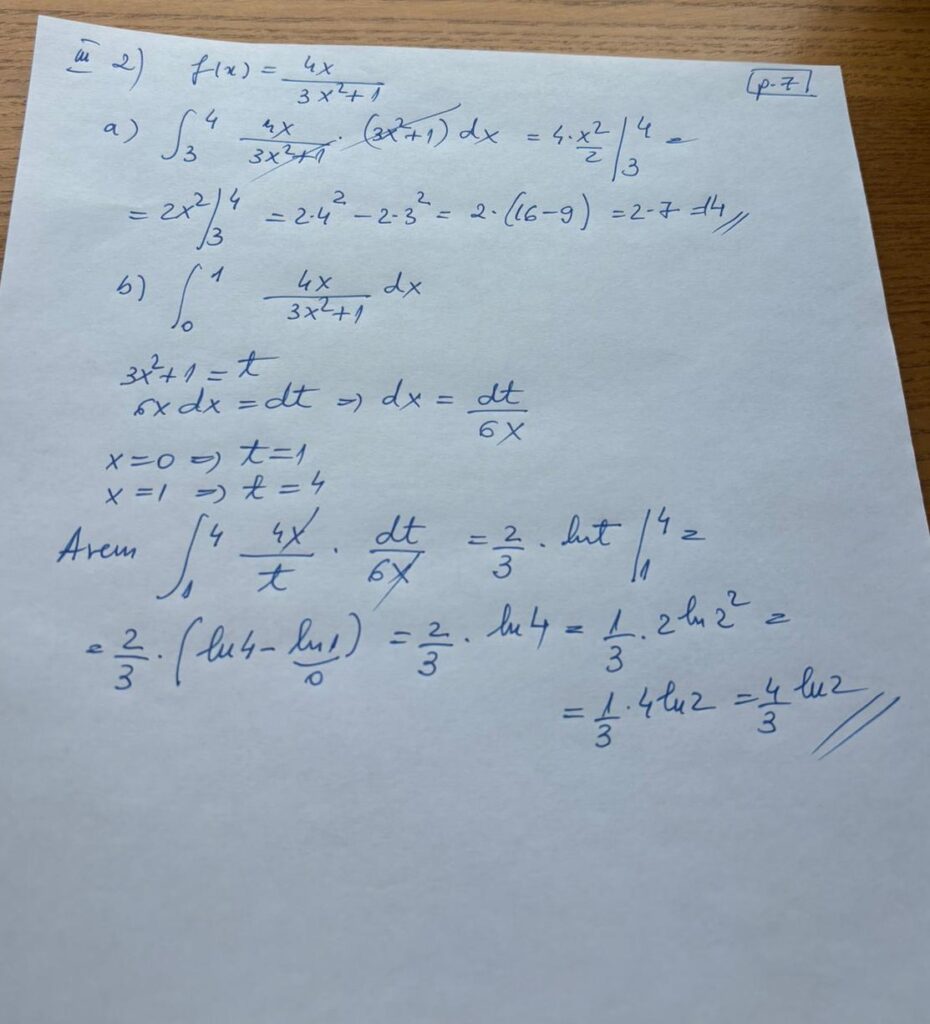 III 2) f(x) = 4x / (3x²+1) p-7
a) ∫₃⁴ 4x/(3x²+1) · (3x²+1) dx = 4·x²/2 |₃⁴ =
= 2x² |₃⁴ = 2·4² − 2·3² = 2·(16−9) = 2·7 = 14 //
b) ∫₀¹ 4x/(3x²+1) dx
3x²+1 = t
6x dx = dt ⇒ dx = dt/6x
x=0 ⇒ t=1
x=1 ⇒ t=4
Avem ∫₁⁴ 4x/t · dt/6x = 2/3 · ln t |₁⁴ =
= 2/3 · (ln4 − ln1) = 2/3 · ln4 = 1/3 · 2 ln2² =
0
= 1/3 · 4 ln2 = 4/3 ln2 //